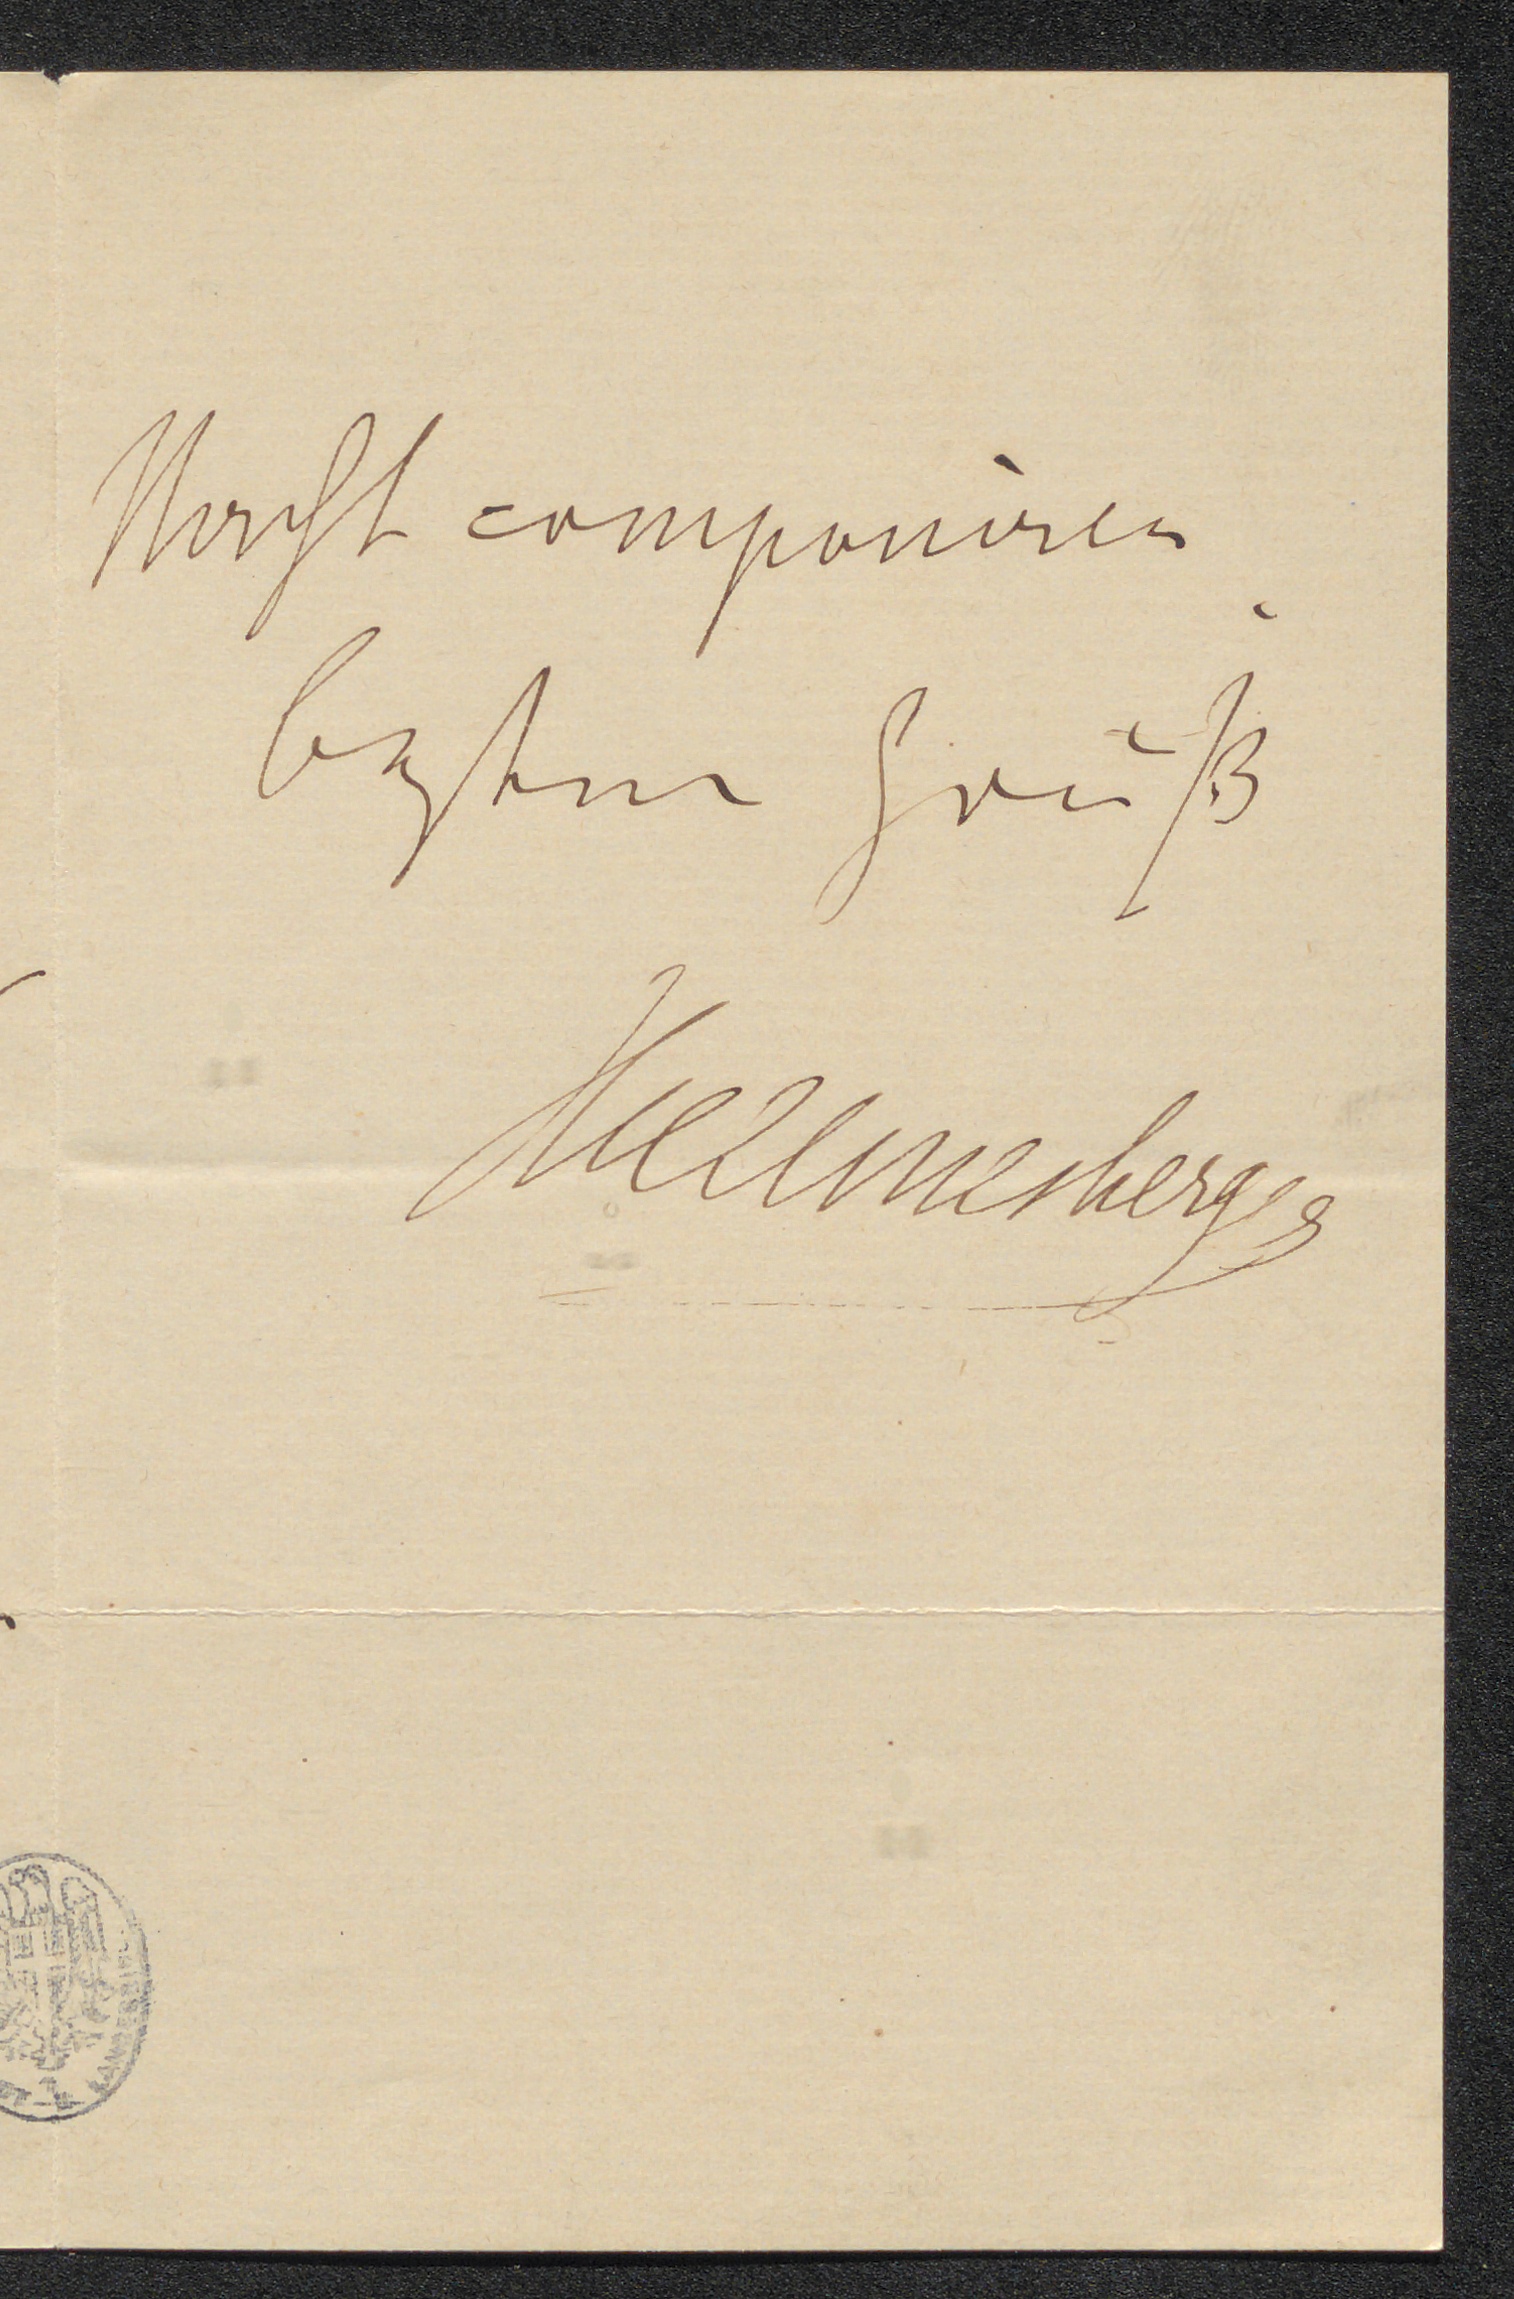 Nacht componiren
besten Gruß
Hellmesberger